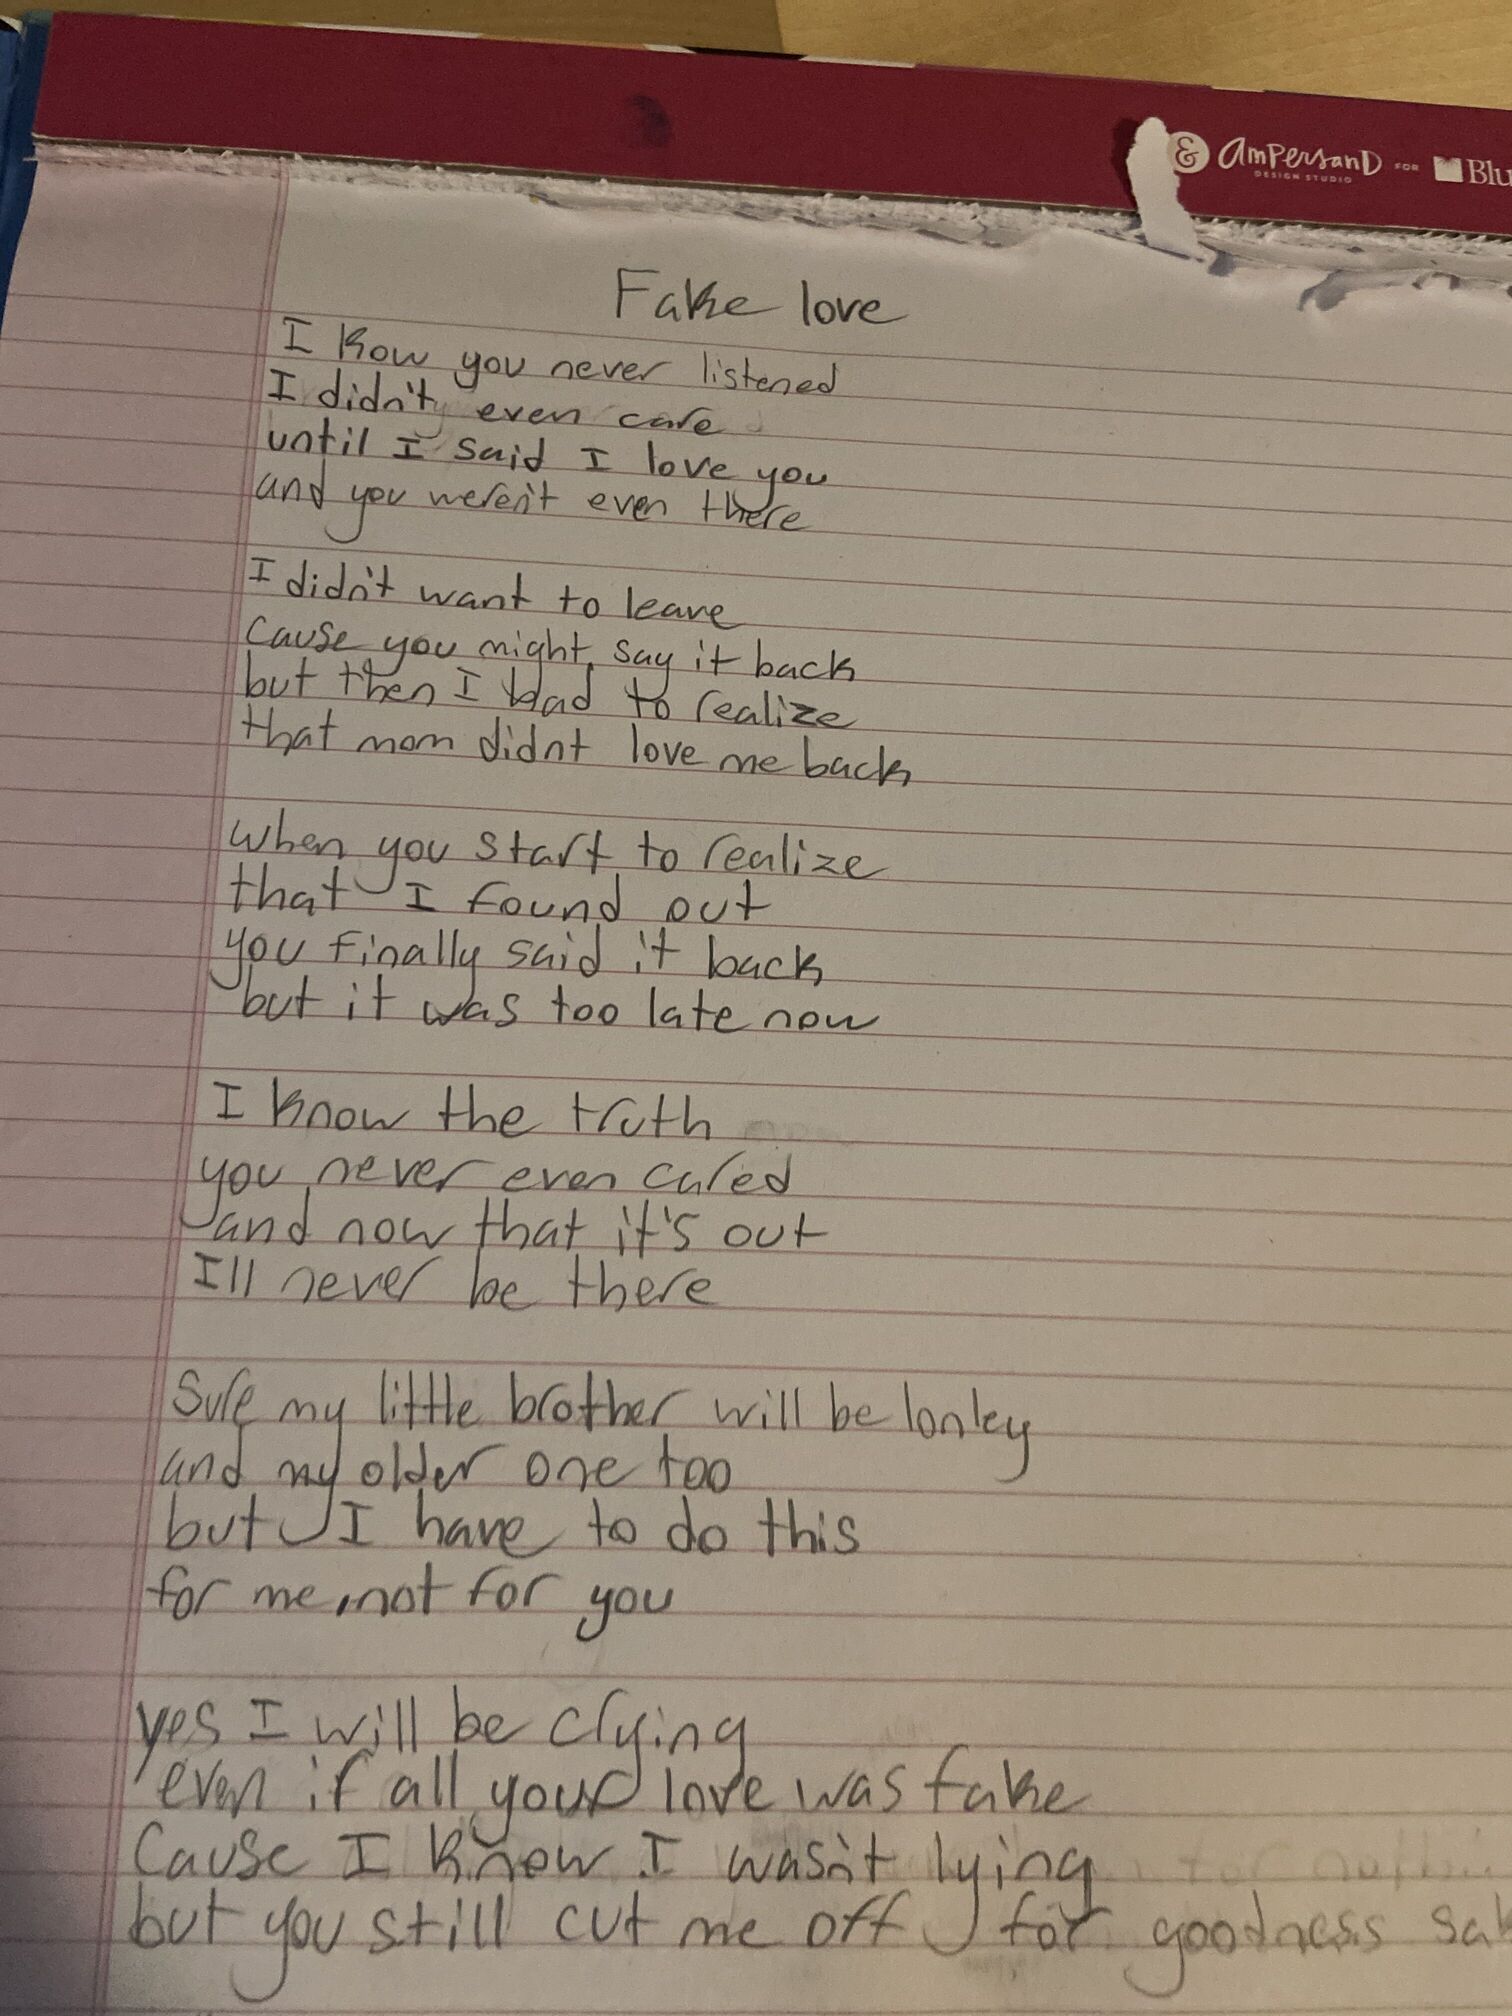 & AMPERSAND FOR Blu
DESIGN STUDIO
Fake love
I Kow you never listened
I didn't even care
until I said I love you
and you weren't even there
I didn't want to leave
cause you might say it back
but then I had to realize
that mom didnt love me back
when you start to realize
that I found out
you finally said it back
but it was too late now
I know the truth
you never even cared
and now that it's out
I'll never be there
Sure my little brother will be lonley
and my older one too
but I have to do this
for me, not for you
yes I will be crying
even if all your love was fake
Cause I know I wasn't lying
but you still cut me off for goodness sak